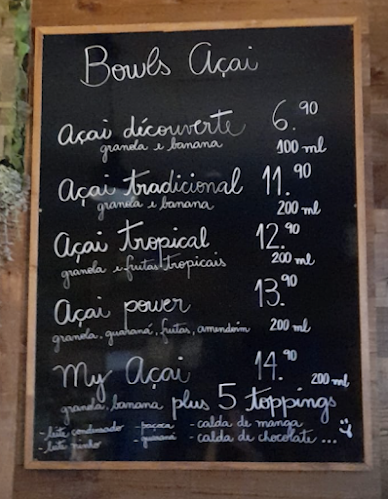 Bowls Açaí
Açaí découverte 6.90
granola e banana 100 ml
Açaí tradicional 11.90
granola e banana 200 ml
Açaí Tropical 12.90
granola e frutas tropicais 200 ml
Açaí power 13.90
granola, guaraná, frutas, amendoim 200 ml
My Açaí 14.90
200 ml
granola, banana plus 5 toppings
- leite condensado - paçoca - calda de manga
- leite ninho - guaraná - calda de chocolate ...